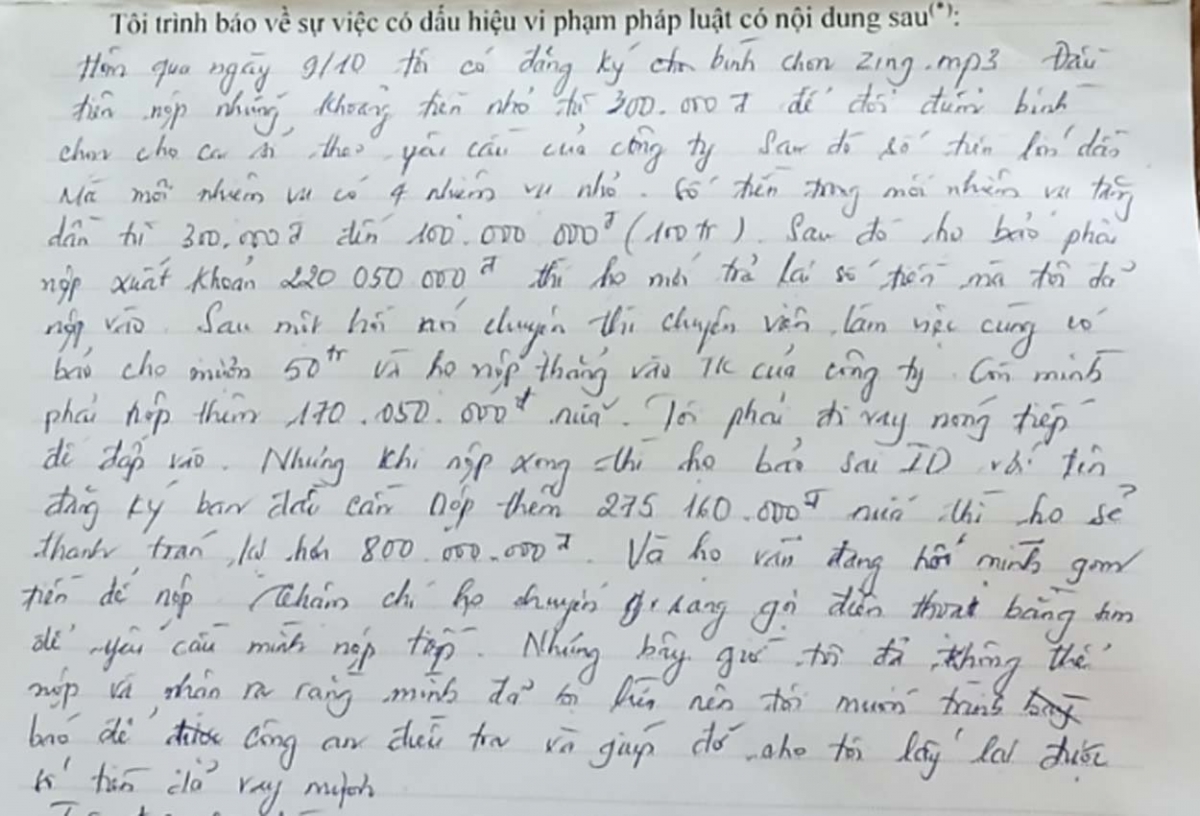 Tôi trình báo về sự việc có dấu hiệu vi phạm pháp luật có nội dung sau(*):
Hôm qua ngày 9/10 tôi có đăng ký bình chọn zing.mp3 Đầu
tiên nộp những khoảng tiền nhỏ từ 300.000đ để đổi điểm bình
chọn cho ca sĩ theo yêu cầu của công ty Sau đó số tiền lớn dần
Mà mỗi nhiệm vụ có 4 nhiệm vụ nhỏ. Số tiền trong mỗi nhiệm vụ tăng
dần từ 300.000đ đến 100.000 000đ (100tr). Sau đó họ bảo phải
nộp xuất khoản 220 050 000đ thì họ mới trả lại số tiền mà tôi đã
nộp vào. Sau một hồi nói chuyện thì chuyên viên làm việc cùng có
báo cho mượn 50tr và họ nộp thẳng vào TK của công ty. Còn mình
phải nộp thêm 170.050.000đ nữa. Tôi phải đi vay nóng tiếp
để đắp vào. Nhưng khi nộp xong thì họ bảo sai ID với tên
đăng ký ban đầu cần nộp thêm 275 160.000đ nữa thì họ sẽ
thanh toán lại hơn 800.000.000đ. Và họ vẫn đang hối mình gom
tiền để nộp. Thậm chí họ chuyển sang gọi điện thoại bằng sim
để yêu cầu mình nộp tiếp. Nhưng bây giờ tôi đã không thể
nộp và nhận ra rằng mình đã bị lừa nên tôi muốn trình
báo để được công an điều tra và giúp đỡ cho tôi lấy lại được
số tiền đã vay mượn